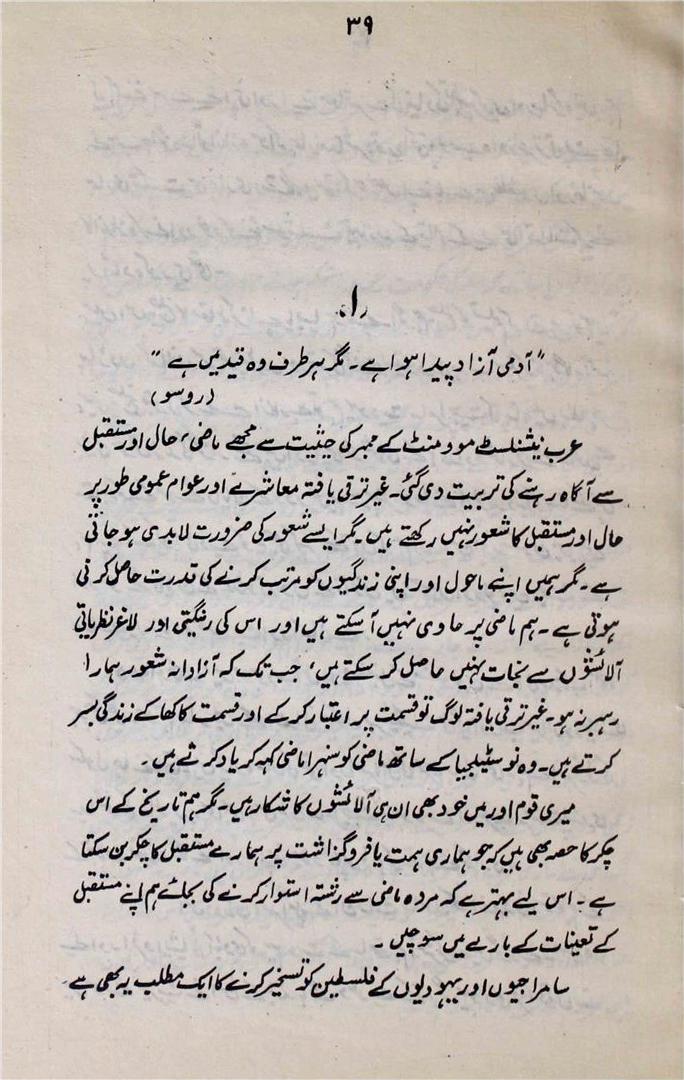 ۳۹
راہ
"آدمی آزاد پیدا ہوا ہے۔ مگر ہر طرف وہ قید میں ہے"
(روسو)
عرب نیشنلسٹ موومنٹ کے ممبر کی حیثیت سے مجھے ماضی، حال اور مستقبل
سے آگاہ رہنے کی تربیت دی گئی۔ غیر ترقی یافتہ معاشرے اور عوام عمومی طور پر
حال اور مستقبل کا شعور نہیں رکھتے ہیں۔ مگر ایسے شعور کی ضرورت لابدی ہو جاتی
ہے۔ مگر ہمیں اپنے ماحول اور اپنی زندگیوں کو مرتب کرنے کی قدرت حاصل کرنی
ہوتی ہے۔ ہم ماضی پر حاوی نہیں آ سکتے ہیں اور اس کی رنگیتی اور لاغر نظریاتی
آلائشوں سے نجات نہیں حاصل کر سکتے ہیں، جب تک کہ آزادانہ شعور ہمارا
رہبر نہ ہو۔ غیر ترقی یافتہ لوگ تو قسمت پر اعتبار کر کے اور قسمت کا کھا کے زندگی بسر
کرتے ہیں۔ وہ نوسٹیلجیا کے ساتھ ماضی کو سنہرا ماضی کہہ کر یاد کرتے ہیں۔
میری قوم اور میں خود بھی ان ہی آلائشوں کا شکار ہیں۔ مگر ہم تاریخ کے اس
چکر کا حصہ بھی ہیں کہ جو ہماری ہمت یا فروگذاشت پر ہمارے مستقبل کا چکر بن سکتا
ہے۔ اس لیے بہتر ہے کہ مردہ ماضی سے رشتہ استوار کرنے کی بجائے ہم اپنے مستقبل
کے تعینات کے بارے میں سوچیں۔
سامراجیوں اور یہودیوں کے فلسطین کو تسخیر کرنے کا ایک مطلب یہ بھی ہے۔